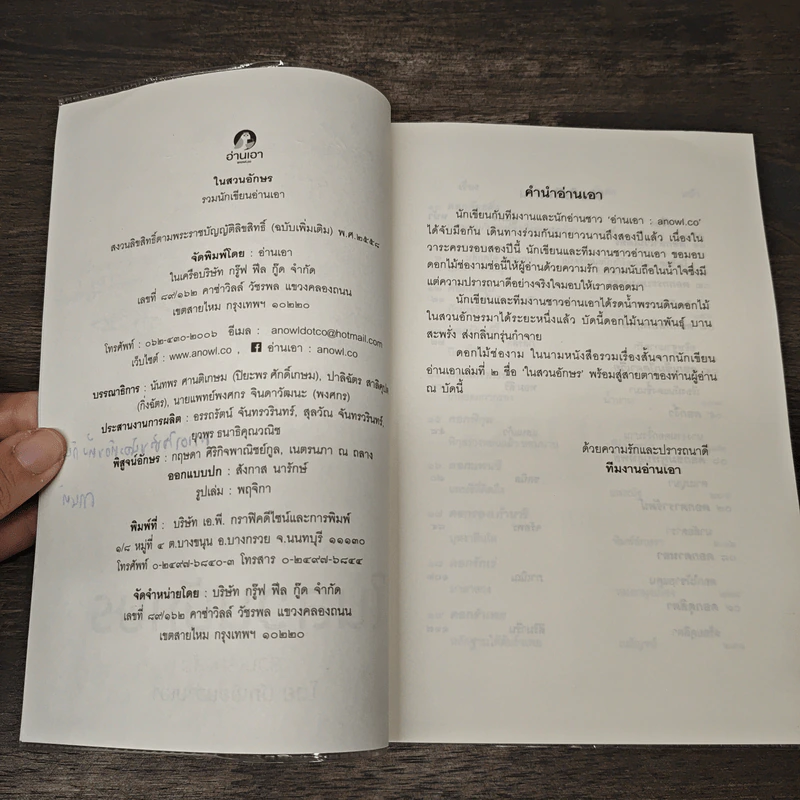 อ่านเอา
ในสวนอักษร
รวมนักเขียนอ่านเอา
สงวนลิขสิทธิ์ตามพระราชบัญญัติลิขสิทธิ์ (ฉบับเพิ่มเติม) พ.ศ.๒๕๕๘
จัดพิมพ์โดย : อ่านเอา
ในเครือบริษัท กรู๊ฟ ฟีล กู๊ด จำกัด
เลขที่ ๘๙/๑๖๒ คาซ่าวิลล์ วัชรพล แขวงคลองถนน
เขตสายไหม กรุงเทพฯ ๑๐๒๒๐
โทรศัพท์ : ๐๖๒-๔๓๐-๒๐๐๖ อีเมล : anowldotco@hotmail.com
เว็บไซต์ : www.anowl.co , อ่านเอา : anowl.co
บรรณาธิการ : นันทพร ศานติเกษม (ปิยะพร ศักดิ์เกษม), ปาลิฉัตร สาลิคุปต
(กิ่งฉัตร), นายแพทย์พงศกร จินดาวัฒนะ (พงศกร)
ประสานงานการผลิต : อรรถรัตน์ จันทรวรินทร์, สุลวัณ จันทรวรินทร์,
ยุวพร ธนาธิคุณวณิช
พิสูจน์อักษร : กฤษดา ศิริกิจพาณิชย์กูล, เนตรนภา ณ ถลาง
ออกแบบปก : สังกาส นารักษ์
รูปเล่ม : พฤจิกา
พิมพ์ที่ : บริษัท เอ.พี. กราฟิคดีไซน์และการพิมพ์
๑/๘ หมู่ที่ ๔ ต.บางขนุน อ.บางกรวย จ.นนทบุรี ๑๑๑๓๐
โทรศัพท์ ๐-๒๔๙๗-๖๘๔๐-๓ โทรสาร ๐-๒๔๙๗-๖๘๔๔
จัดจำหน่ายโดย : บริษัท กรู๊ฟ ฟีล กู๊ด จำกัด
เลขที่ ๘๙/๑๖๒ คาซ่าวิลล์ วัชรพล แขวงคลองถนน
เขตสายไหม กรุงเทพฯ ๑๐๒๒๐
คำนำอ่านเอา
นักเขียนกับทีมงานและนักอ่านชาว ‘อ่านเอา : anowl.co’
ได้จับมือกัน เดินทางร่วมกันมายาวนานถึงสองปีแล้ว เนื่องใน
วาระครบรอบสองปีนี้ นักเขียนและทีมงานชาวอ่านเอา ขอมอบ
ดอกไม้ช่องามช่อนี้ให้ผู้อ่านด้วยความรัก ความนับถือในน้ำใจซึ่งมี
แต่ความปรารถนาดีอย่างจริงใจมอบให้เราตลอดมา
นักเขียนและทีมงานชาวอ่านเอาได้รดน้ำพรวนดินดอกไม้
ในสวนอักษรมาได้ระยะหนึ่งแล้ว บัดนี้ดอกไม้นานาพันธุ์ บาน
สะพรั่ง ส่งกลิ่นกรุ่นกำจาย
ดอกไม้ช่องาม ในนามหนังสือรวมเรื่องสั้นจากนักเขียน
อ่านเอาเล่มที่ ๒ ชื่อ ‘ในสวนอักษร’ พร้อมสู่สายตาของท่านผู้อ่าน
ณ บัดนี้
ด้วยความรักและปรารถนาดี
ทีมงานอ่านเอา